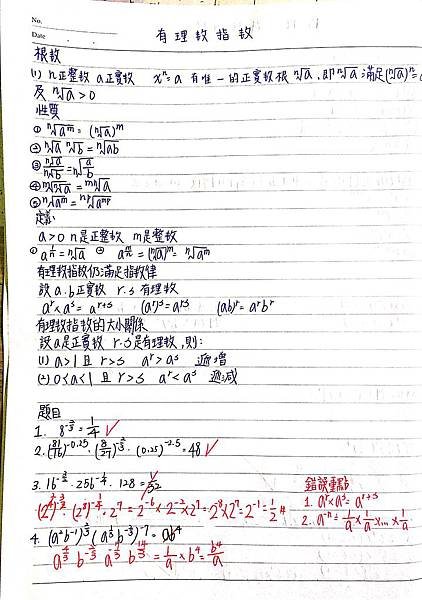 No.
Date
有理數指數
根數
(1) n正整數 a正實數 xⁿ=a 有唯一的正實數根 ⁿ√a，即ⁿ√a 滿足(ⁿ√a)ⁿ=a
及 ⁿ√a > 0
性質
① ⁿ√aᵐ = (ⁿ√a)ᵐ
② ⁿ√a ⁿ√b = ⁿ√ab
③ ⁿ√a/ⁿ√b = ⁿ√(a/b)
④ ᵐ√ⁿ√a = ᵐⁿ√a
⑤ ⁿ√aᵐ = ⁿᵖ√aᵐᵖ
定義:
a>0 n是正整數 m是整數
① a^(1/n) = ⁿ√a ② a^(m/n) = (ⁿ√a)ᵐ = ⁿ√aᵐ
有理數指數仍滿足指數律
設 a.b正實數 r.s 有理數
aʳ×aˢ = aʳ⁺ˢ (aʳ)ˢ=aʳˢ (ab)ʳ=aʳbʳ
有理數指數的大小關係
設a是正實數 r.s是有理數,則:
(1) a>1 且 r>s aʳ>aˢ 遞增
(2) 0<a<1 且 r>s aʳ<aˢ 遞減
題目
1. 8^(-2/3) = 1/4 ✓
2. (81/16)^(-0.25) · (8/27)^(-2/3) · (0.25)^(-2.5) = 48 ✓
3. 16^(-3/2) · 256^(-1/4) · 128 =
錯誤重點
1. aʳ×aˢ = aʳ⁺ˢ
2. a⁻ⁿ = 1/a × 1/a ×...× 1/a
= 2⁻⁶ × 2⁻² × 2⁷ = 2⁻⁸ × 2⁷ = 2⁻¹ = 1/2 #
4. (a²b⁻¹)^(2/3) (a^(1/3) b⁻³)⁻⁷ = ab⁴
= 1/a × b⁴ = b⁴/a